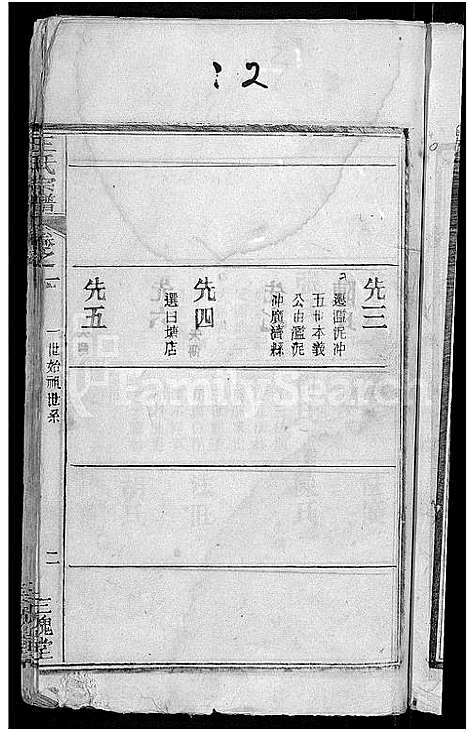 12
先三
遷濫泥冲
五世本義
公由濫泥
冲廣濟縣
先四
遷日塘店
先五
王氏宗譜
卷之一
一世始祖世系
二
三槐堂
FamilySearch